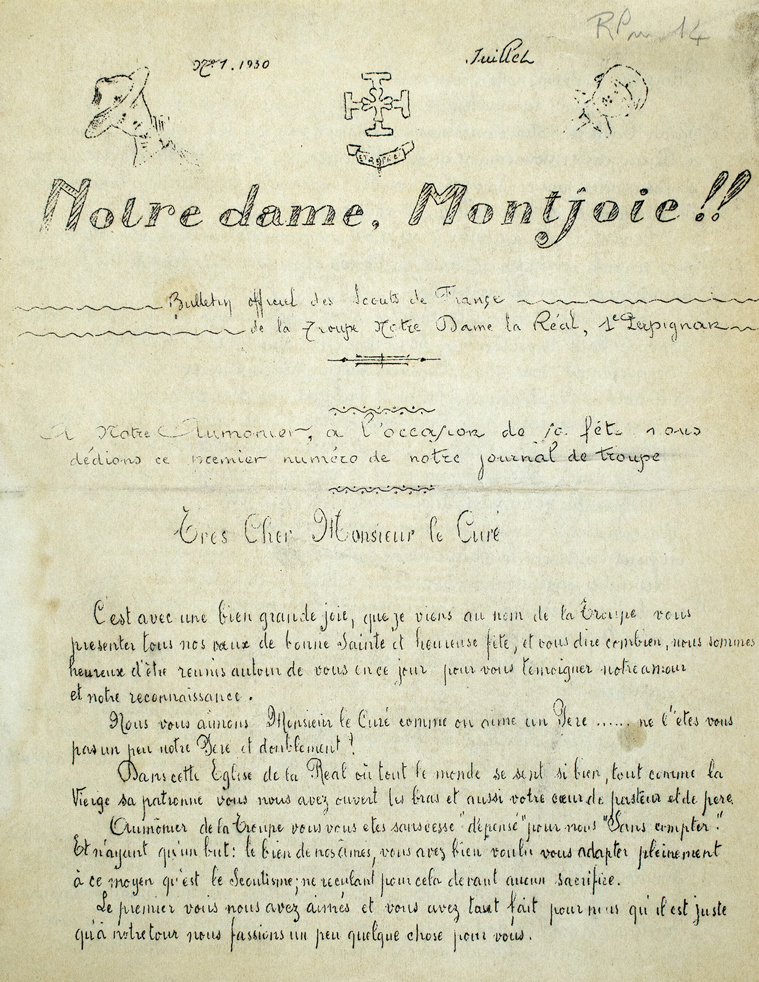 RP 14
Nº1. 1930 Juillet
Notre dame, Montjoie!!
Bulletin officiel des Scouts de France
de la Troupe Notre Dame la Réal, 1e Perpignan
A Notre Aumonier, a l'occasion de sa fête nous
dédions ce premier numéro de notre journal de troupe
Tres Cher Monsieur le Curé
C'est avec une bien grande joie, que je viens au nom de la Troupe vous
presenter tous nos vœux de bonne Sainte et heureuse fête, et vous dire combien, nous sommes
heureux d'être reunis autour de vous en ce jour pour vous temoigner notre amour
et notre reconnaissance.
Nous vous aimons Monsieur le Curé comme on aime un Pere ...... ne l'êtes vous
pas un peu notre Pere et doublement?
Dans cette Eglise de la Real où tout le monde se sent si bien, tout comme la
Vierge sa patronne vous nous avez ouvert les bras et aussi votre cœur de pasteur et de pere.
Aumônier de la Troupe vous vous etes sans cesse "dépensé" pour nous "Sans compter".
Et n'ayant qu'un but: le bien de nos âmes, vous avez bien voulu vous adapter pleinement
à ce moyen qu'est le Scoutisme; ne reculant pour cela devant aucun sacrifice.
Le premier vous nous avez aimés et vous avez tant fait pour nous qu'il est juste
qu'à notre tour nous fassions un peu quelque chose pour vous.